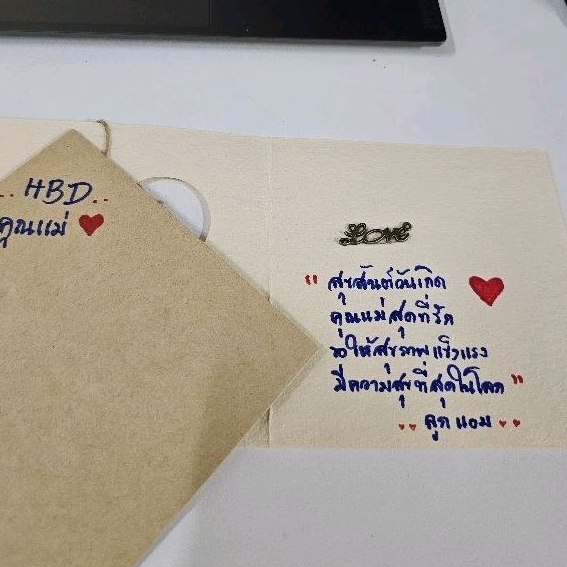 ..HBD..
คุณแม่
Love
"สุขสันต์วันเกิด
คุณแม่สุดที่รัก
ขอให้สุขภาพแข็งแรง
มีความสุขที่สุดในโลก"
ลูกแอม